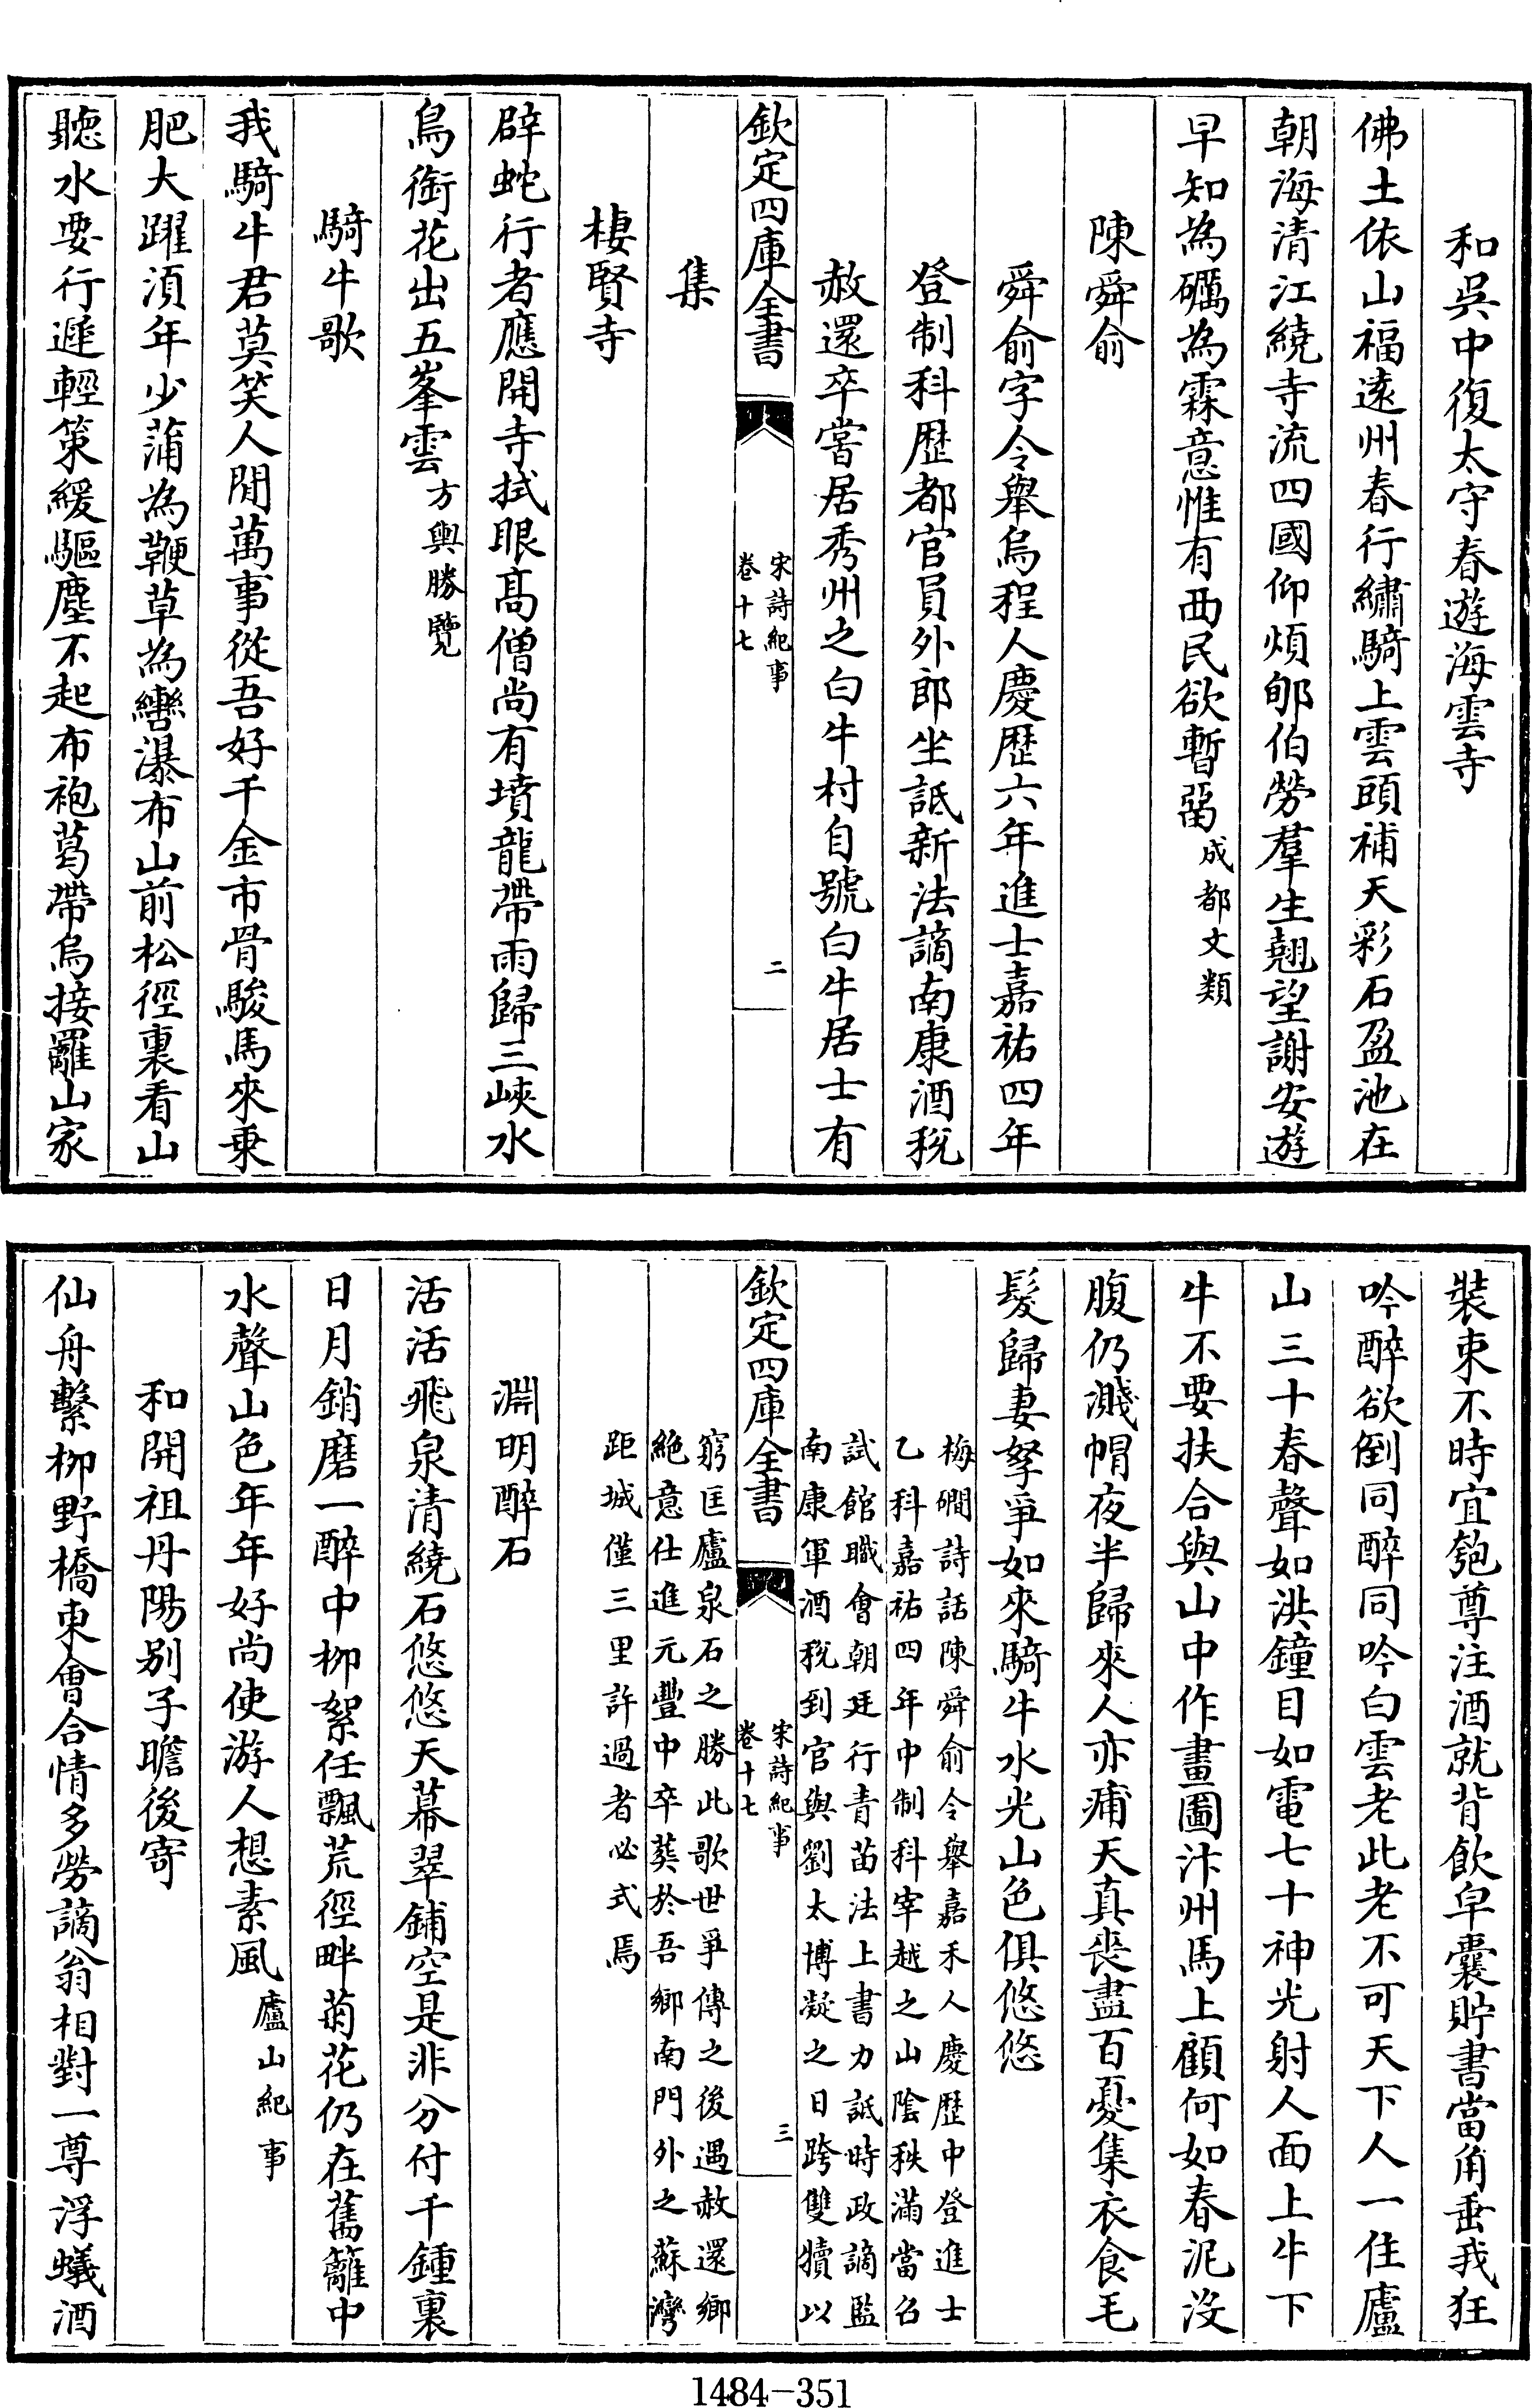 和吳中復太守春遊海雲寺
佛土依山福遠州春行繡騎上雲頭補天彩石盈池在
朝海清江繞寺流四國仰煩郇伯勞羣生翹望謝安遊
早知為礪為霖意惟有西民欲暫留成都文類
陳舜俞
舜俞字令舉烏程人慶歴六年進士嘉祐四年
登制科歴都官員外郎坐詆新法謫南康酒稅
赦還卒嘗居秀州之白牛村自號白牛居士有
欽定四庫全書
宋詩紀事
卷十七
二
集
棲賢寺
辟蛇行者應開寺拭眼髙僧尚有墳龍帶雨歸三峽水
鳥銜花出五峯雲方輿勝覽
騎牛歌
我騎牛君莫笑人間萬事從吾好千金市骨駿馬來乗
肥大躍須年少蒲為鞭草為轡瀑布山前松徑裏看山
聽水要行遲輕策緩驅塵不起布袍葛帶烏接䍦山家
裝束不時宜匏尊注酒就背飲皁囊貯書當角垂我狂
吟醉欲倒同醉同吟白雲老此老不可天下人一住廬
山三十春聲如洪鐘目如電七十神光射人面上牛下
牛不要扶合與山中作畫圖汴州馬上顧何如春泥沒
腹仍濺帽夜半歸來人亦痡天真喪盡百憂集衣食毛
髮歸妻孥爭如來騎牛水光山色俱悠悠
梅磵詩話陳舜俞令舉嘉禾人慶歴中登進士
乙科嘉祐四年中制科宰越之山陰秩滿當召
試館職會朝廷行青苗法上書力詆時政謫監
南康軍酒稅到官與劉太博凝之日跨雙犢以
欽定四庫全書
宋詩紀事
卷十七
三
窮匡廬泉石之勝此歌世爭傳之後遇赦還鄉
絶意仕進元豐中卒葬於吾鄉南門外之蘇灣
距城僅三里許過者必式焉
淵明醉石
活活飛泉清繞石悠悠天幕翠鋪空是非分付千鍾裏
日月銷磨一醉中柳絮任飄荒徑畔菊花仍在舊籬中
水聲山色年年好尚使游人想素風廬山紀事
和開祖丹陽别子瞻後寄
仙舟繫柳野橋東會合情多勞謫翁相對一尊浮蟻酒
1484-351